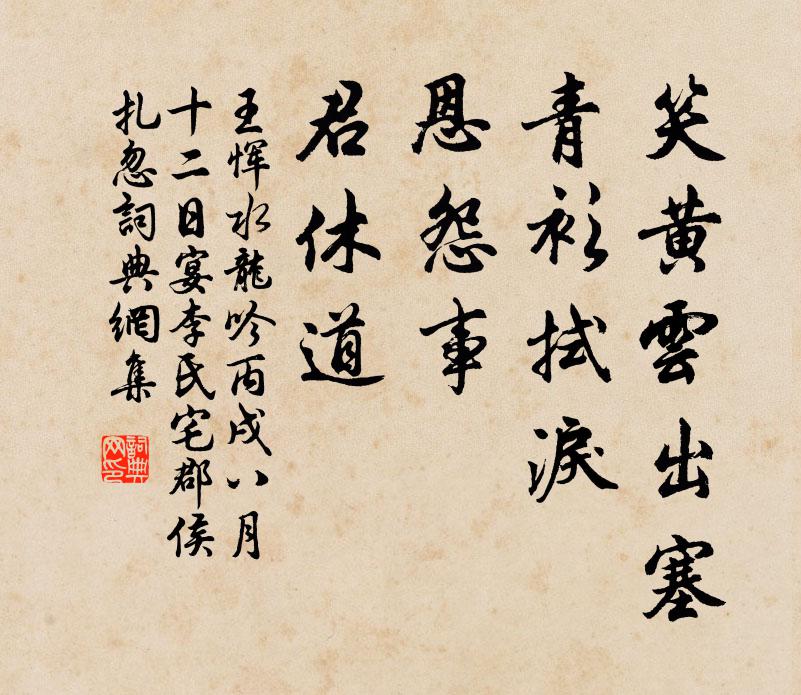 笑黃雲出塞
青衫拭淚
恩怨事
君休道
王惲水龍吟丙戌八月
十二日宴李氏宅郡侯
扎忽詞典網集
詞典网印